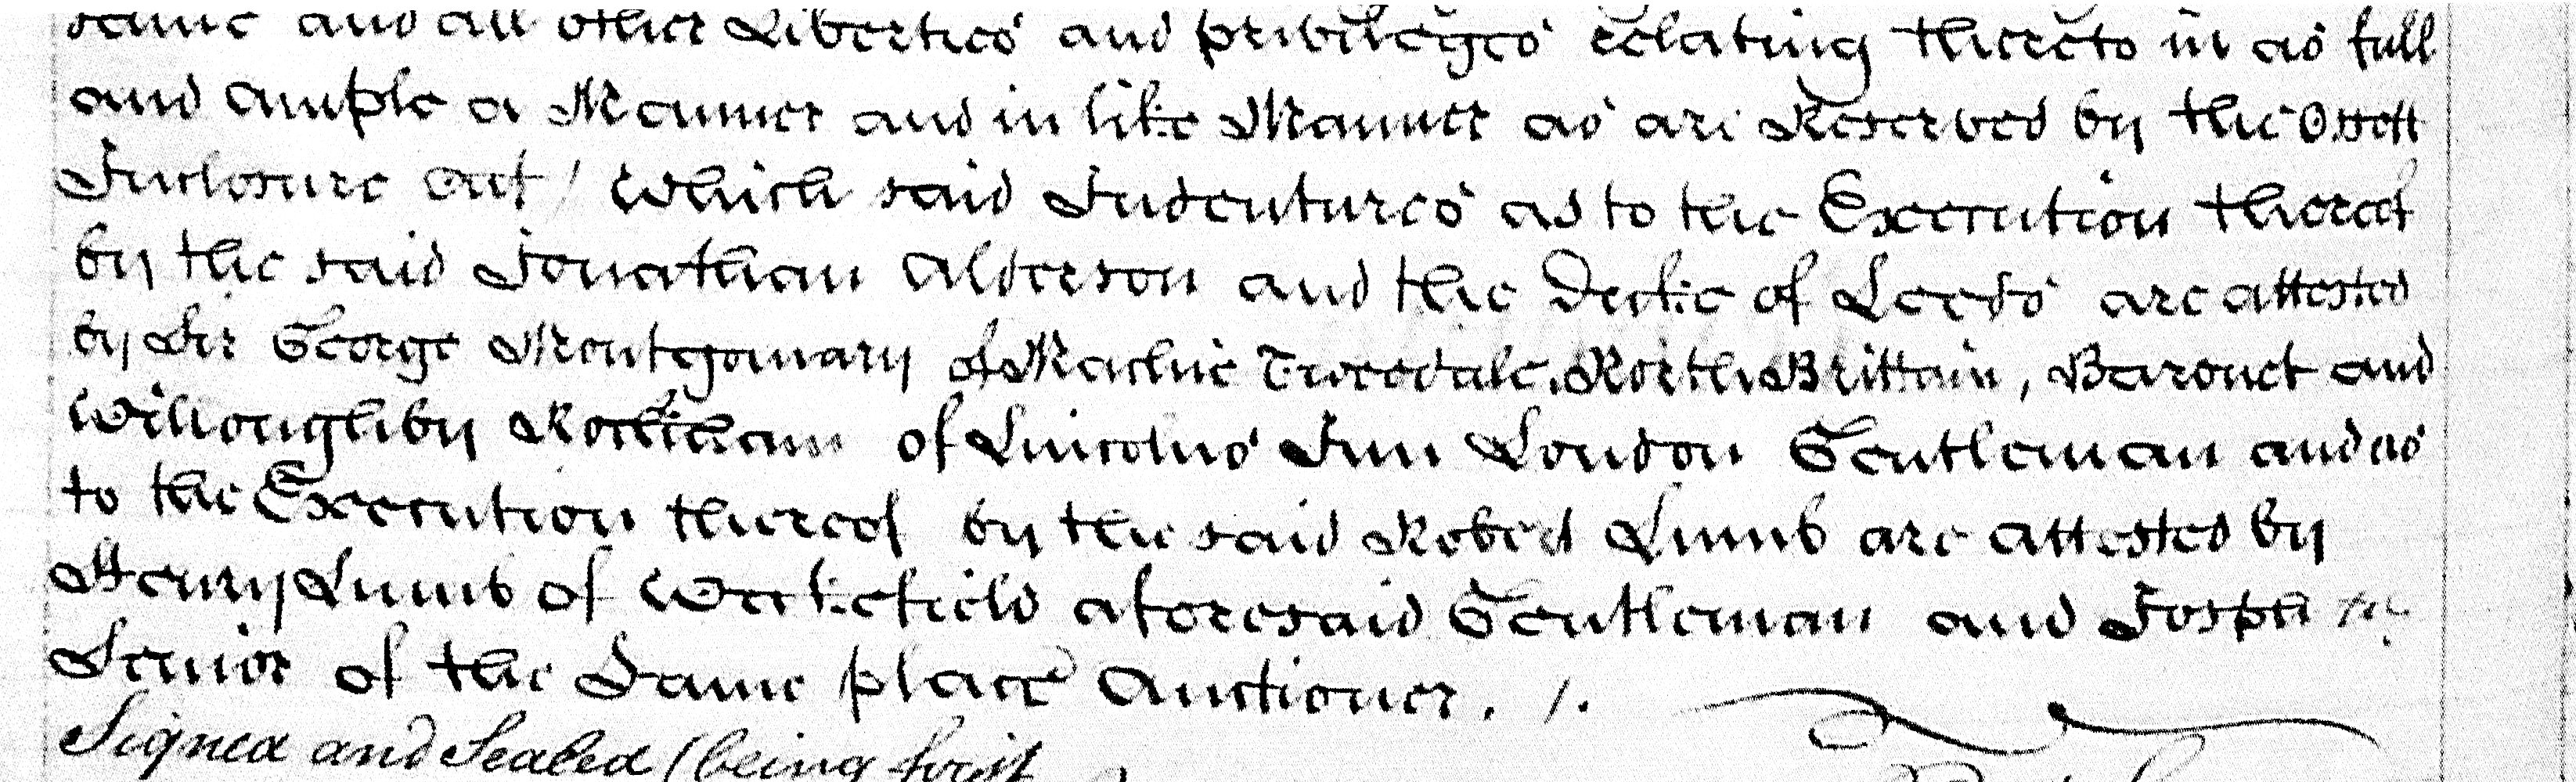 same and all other Liberties and priviledges relating thereto in as full
and ample a Manner and in like Manner as are Reserved by the Ossett
Inclosure act / Which said Indentures as to the Execution thereof
by the said Jonathan Alderson and the Duke of Leeds are attested
by Sir George Montgomary of Tweedale, North Brittain, Baronet and
Willoughby of Lincolns Inn London Gentleman and as
to the Execution thereof by the said Robert Lumb are attested by
Henry Lumb of Wakefield aforesaid Gentleman and Josph
Senior of the Same place Auctioner. /.
Signed and Sealed (being first